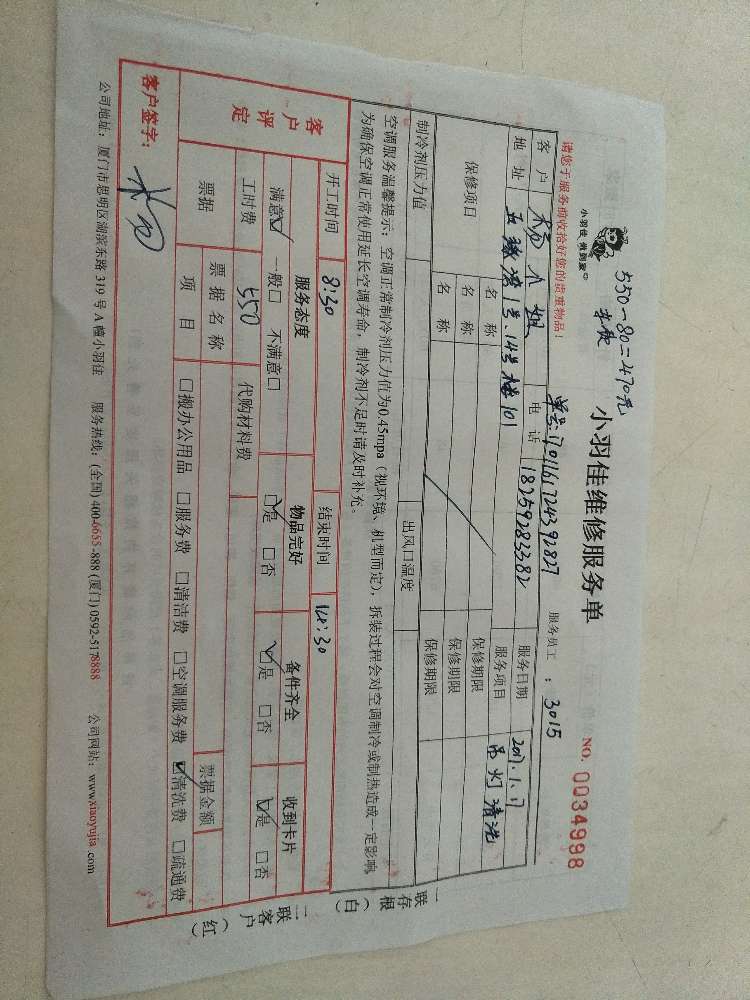 550-80=470元
小羽佳 做到家
小羽佳维修服务单
NO. 0034998
服务员工：3015
请您于服务前收拾好您的贵重物品！
单号：
客户 小姐 电话 18259283282 服务日期 2017.1.17
地址 五缘湾1号、14号楼101 服务项目 吊灯清洗
保修项目 名称 保修期限
名称 保修期限
名称 保修期限
制冷剂压力值 出风口温度
空调服务温馨提示：空调正常制冷剂压力值为0.45mpa（视环境、机型而定），拆装过程会对空调制冷或制热造成一定影响，
为确保空调正常使用延长空调寿命，制冷剂不足时请及时补充。
一联存根（白）
二联客户（红）
开工时间 8:30 结束时间
客户评定 服务态度 物品完好 备件齐全 收到卡片
满意☑ 一般□ 不满意□ ☑是 □否 ☑是 □否 ☑是 □否
工时费 550 代购材料费
票据 票据名称 票据金额
项目 □搬办公用品 □服务费 □清洁费 □空调服务费 ☑清洗费 □疏通费
客户签字：
公司地址：厦门市思明区湖滨东路319号A幢小羽佳 服务热线：(全国) 400-6655-888 (厦门) 0592-5178888 公司网站：www.xiaoyujia.com